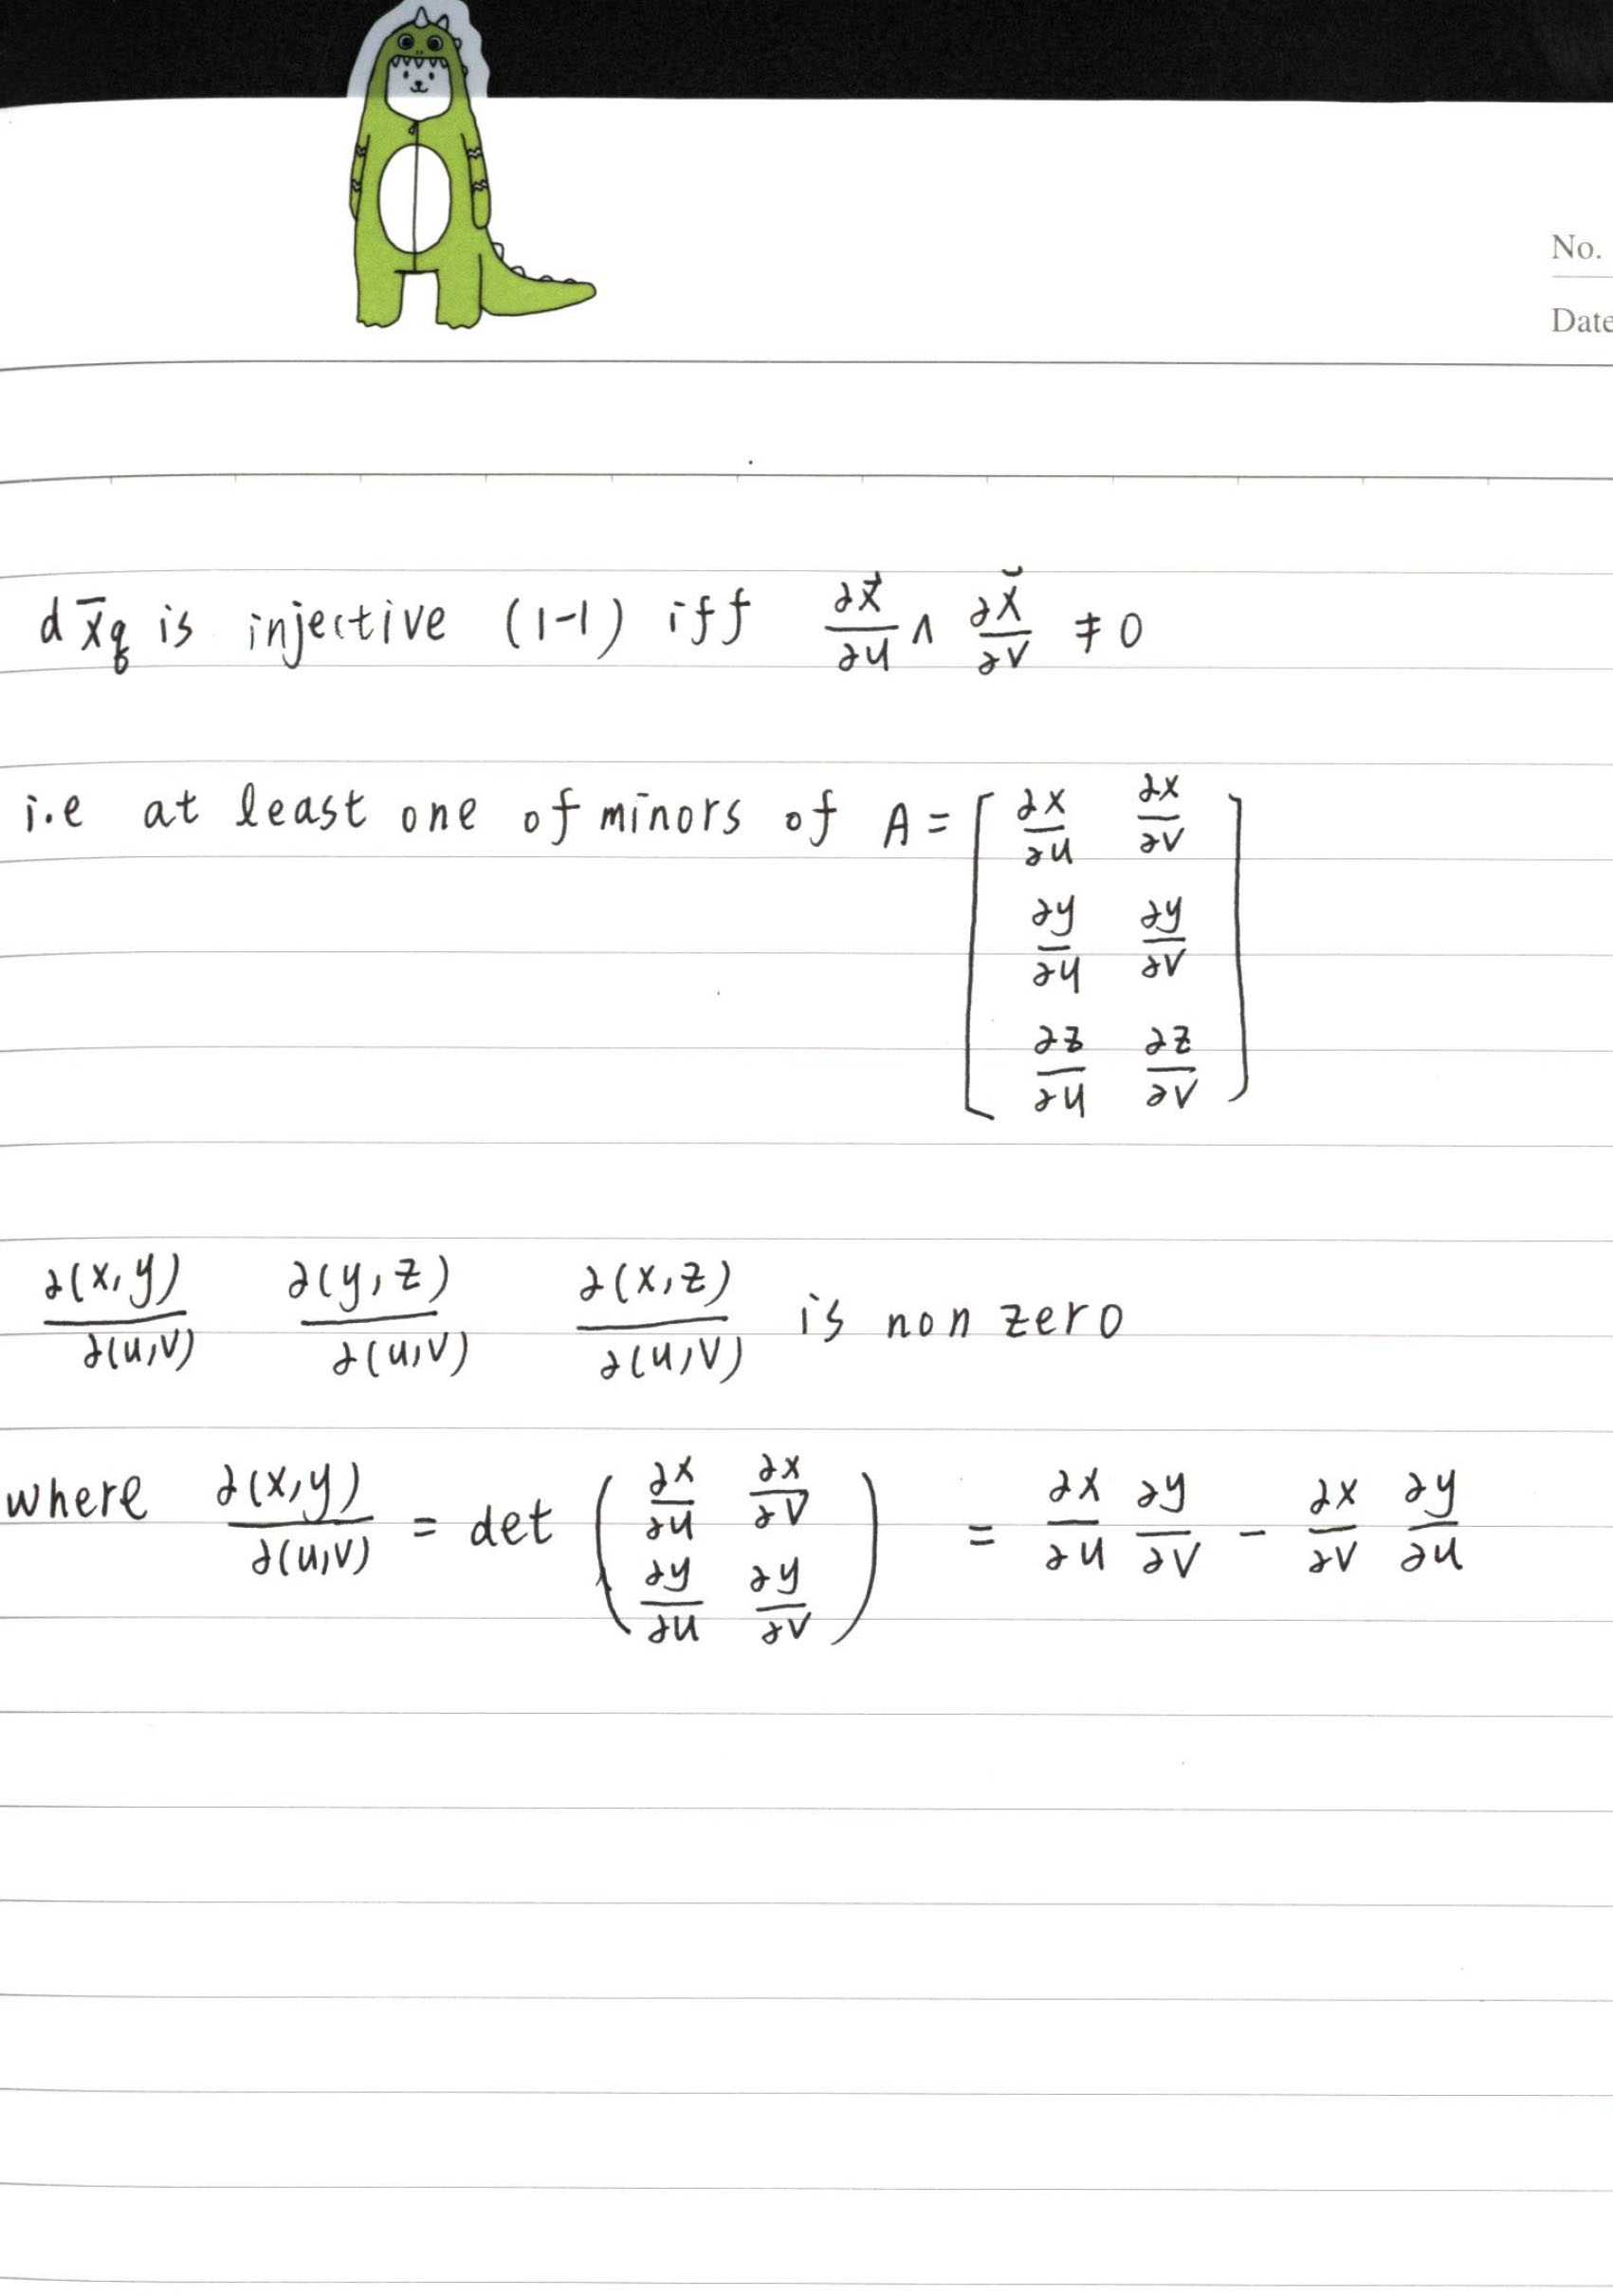 No.
Date
d x̄q is injective (1-1) iff ∂x⃗/∂u ∧ ∂x̆/∂v ≠ 0
i.e at least one of minors of A = [ ∂x/∂u ∂x/∂v
∂y/∂u ∂y/∂v
∂z/∂u ∂z/∂v ]
∂(x,y)/∂(u,v) ∂(y,z)/∂(u,v) ∂(x,z)/∂(u,v) is non zero
where ∂(x,y)/∂(u,v) = det ( ∂x/∂u ∂x/∂v
∂y/∂u ∂y/∂v ) = ∂x/∂u ∂y/∂v - ∂x/∂v ∂y/∂u